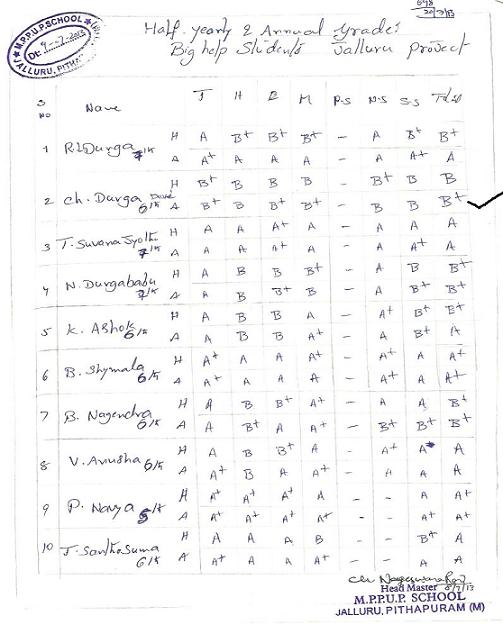 Half-yearly & Annual Grades
Big help Students Jalluru project
M.P.P.U.P. SCHOOL
Dt: 9-7-2013
JALLURU, PITHA
S NO Name T H E M P.S N.S S.S Total
1 R.L.Durga 7th H A B+ B+ B+ - A B+ B+
A A+ A A A - A A+ A
2 Ch. Durga Devi 6th H B+ B B B - B+ B B
A B+ B B+ B+ - B B B+
3 T. Suvana Jyothi 7th H A A A+ A - A A A
A A A A+ A - A A+ A
4 N. Durgababu 7th H A B B B+ - A B B+
A A B B+ B - A B+ B+
5 K. Ashok 6th H A B B A - A+ B+ B+
A A B B A+ - A B+ A
6 B. Shymala 6th H A+ A A A+ - A+ A A+
A A+ A A A - A+ A A+
7 B. Nagendra 6th H A B B+ A+ - A A B+
A A B+ A A+ - B+ B+ B+
8 V. Anusha 6th H A B B+ A - A+ A+ A
A A+ B A A+ - A A A
9 P. Navya 5th H A+ A+ A+ A - - A A+
A A+ A+ A+ A+ - - A+ A+
10 J. Santhe Suma 6th H A A A B - - B+ A
A A+ A A A+ - - A A
Head Master 8/7/13
M.P.P.U.P. SCHOOL
JALLURU, PITHAPURAM (M)